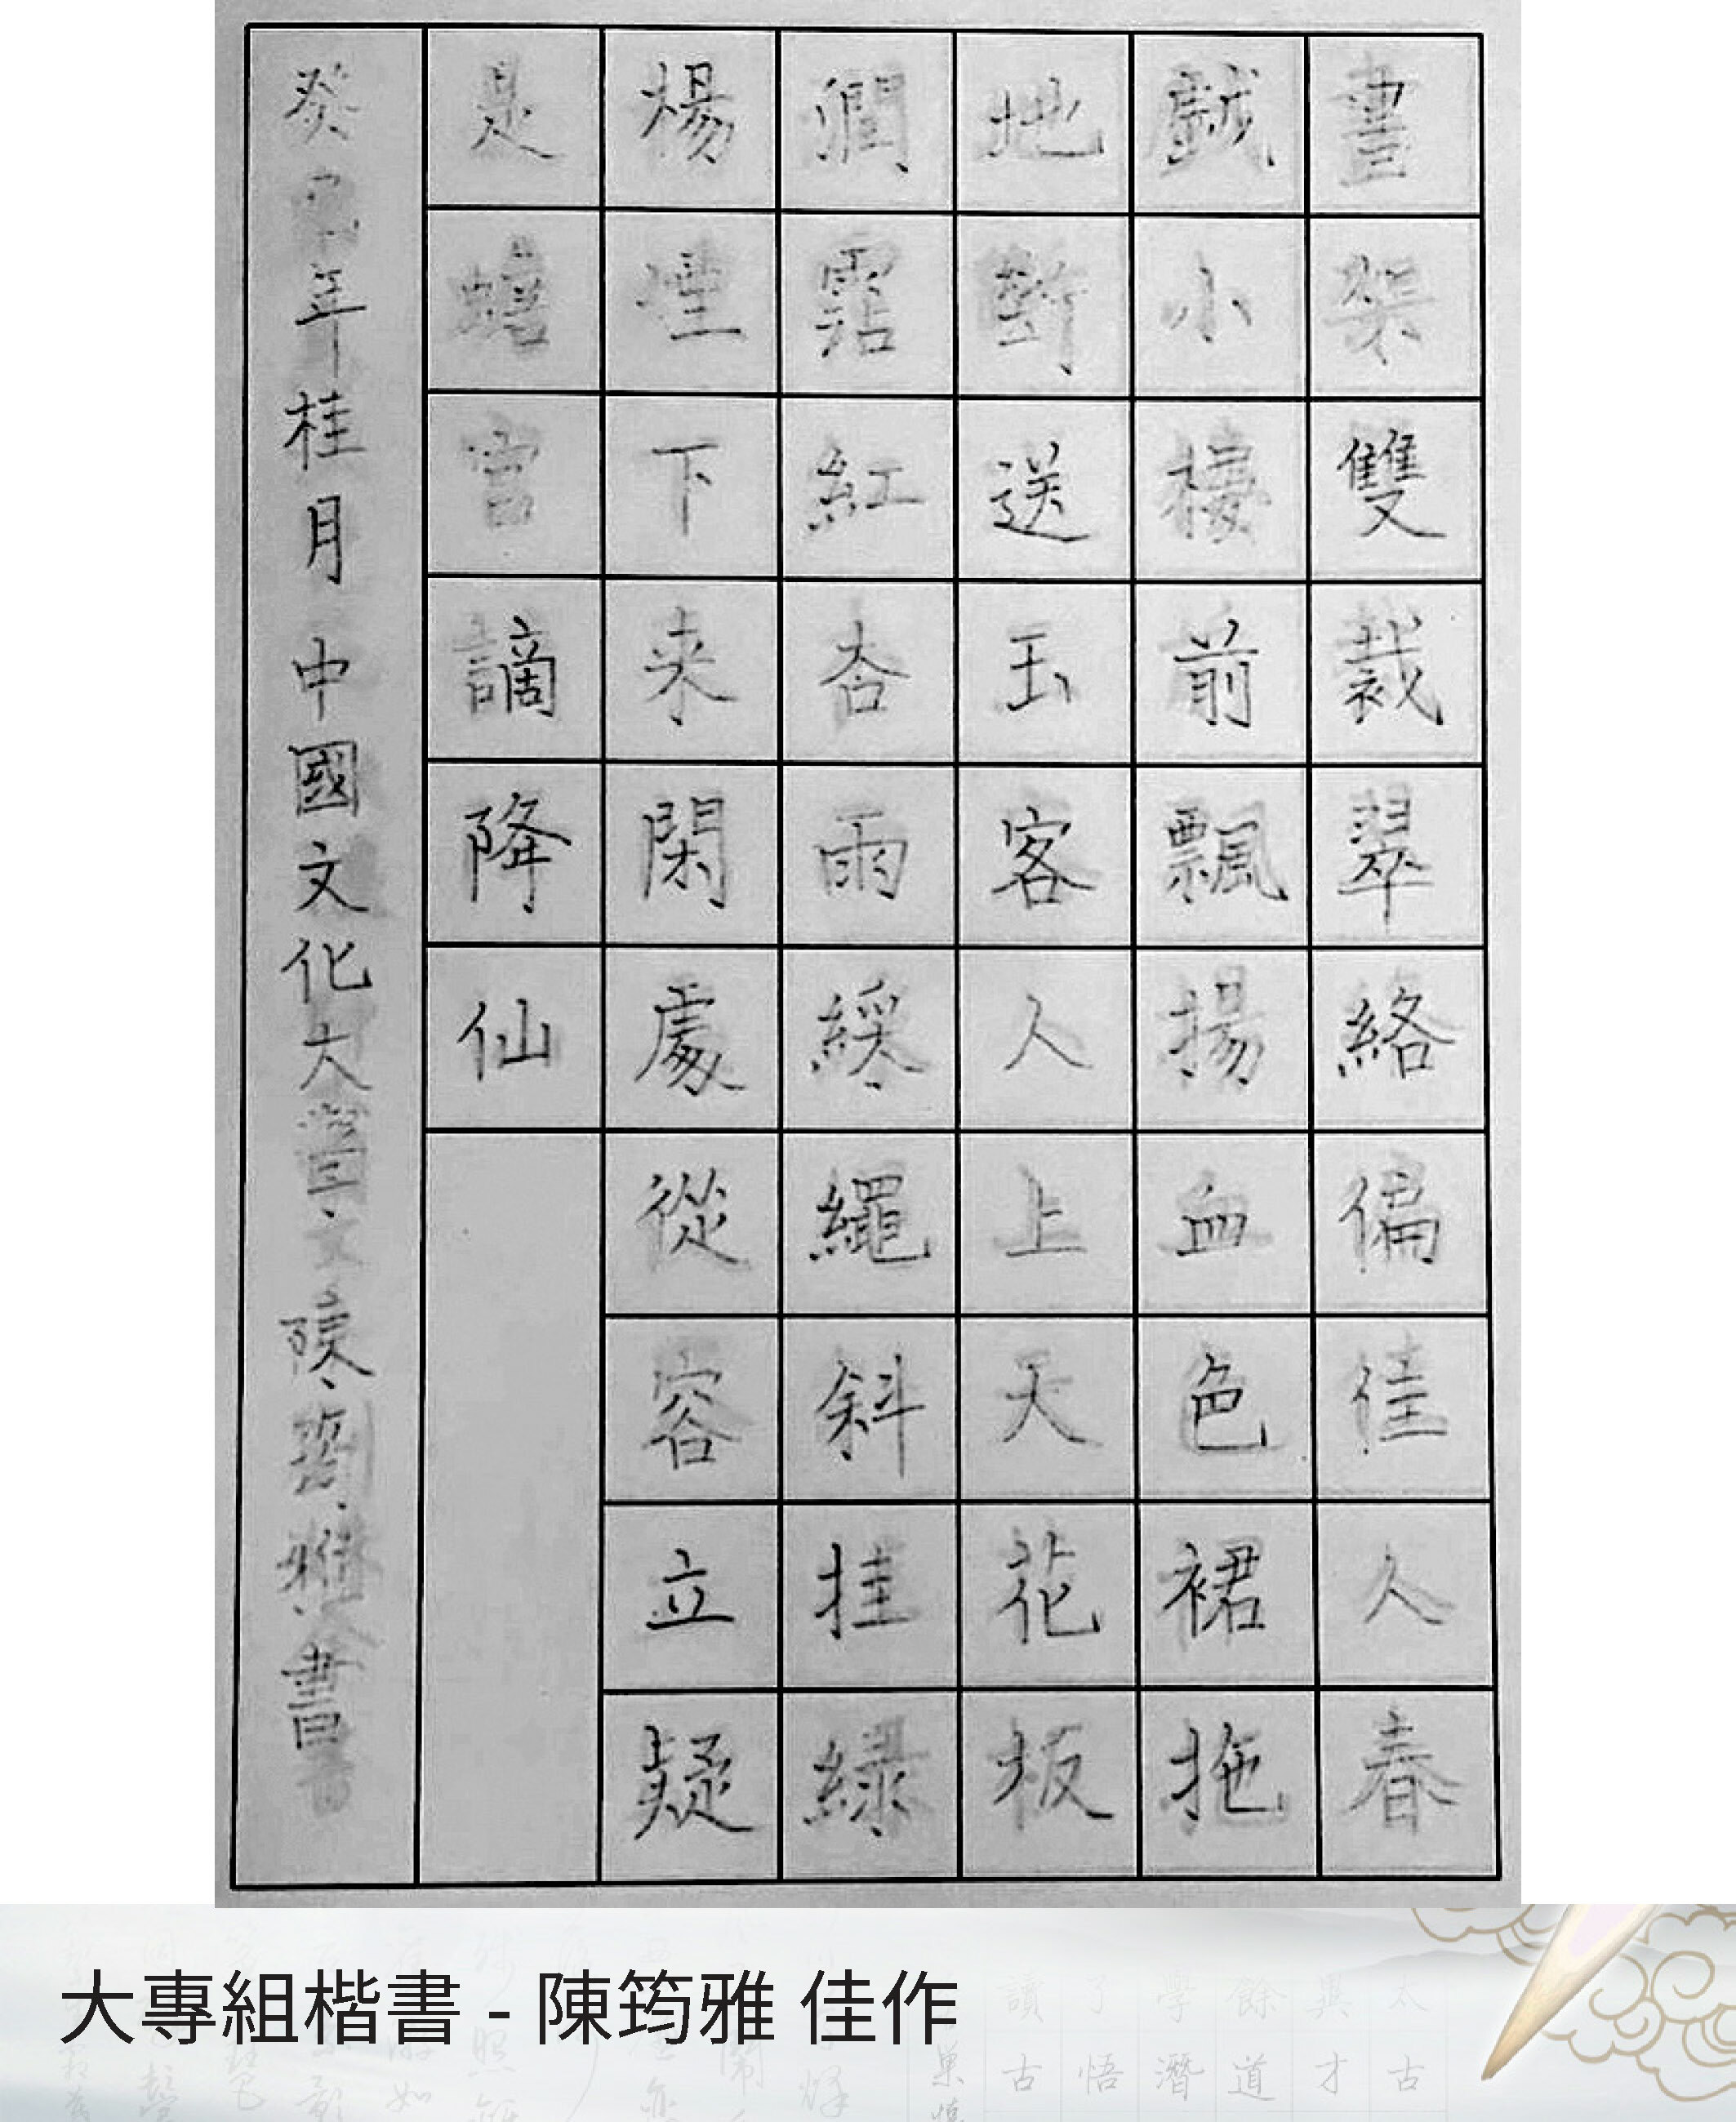 畫架雙裁翠絡偏佳人春
戲小樓前飄揚血色裙拖
地斷送玉客人上天花板
潤霑紅杏雨綵繩斜挂綠
楊煙下来閑處從容立疑
是蟾宮謫降仙
癸卯年桂月中國文化大學陳筠雅書
大專組楷書 - 陳筠雅 佳作